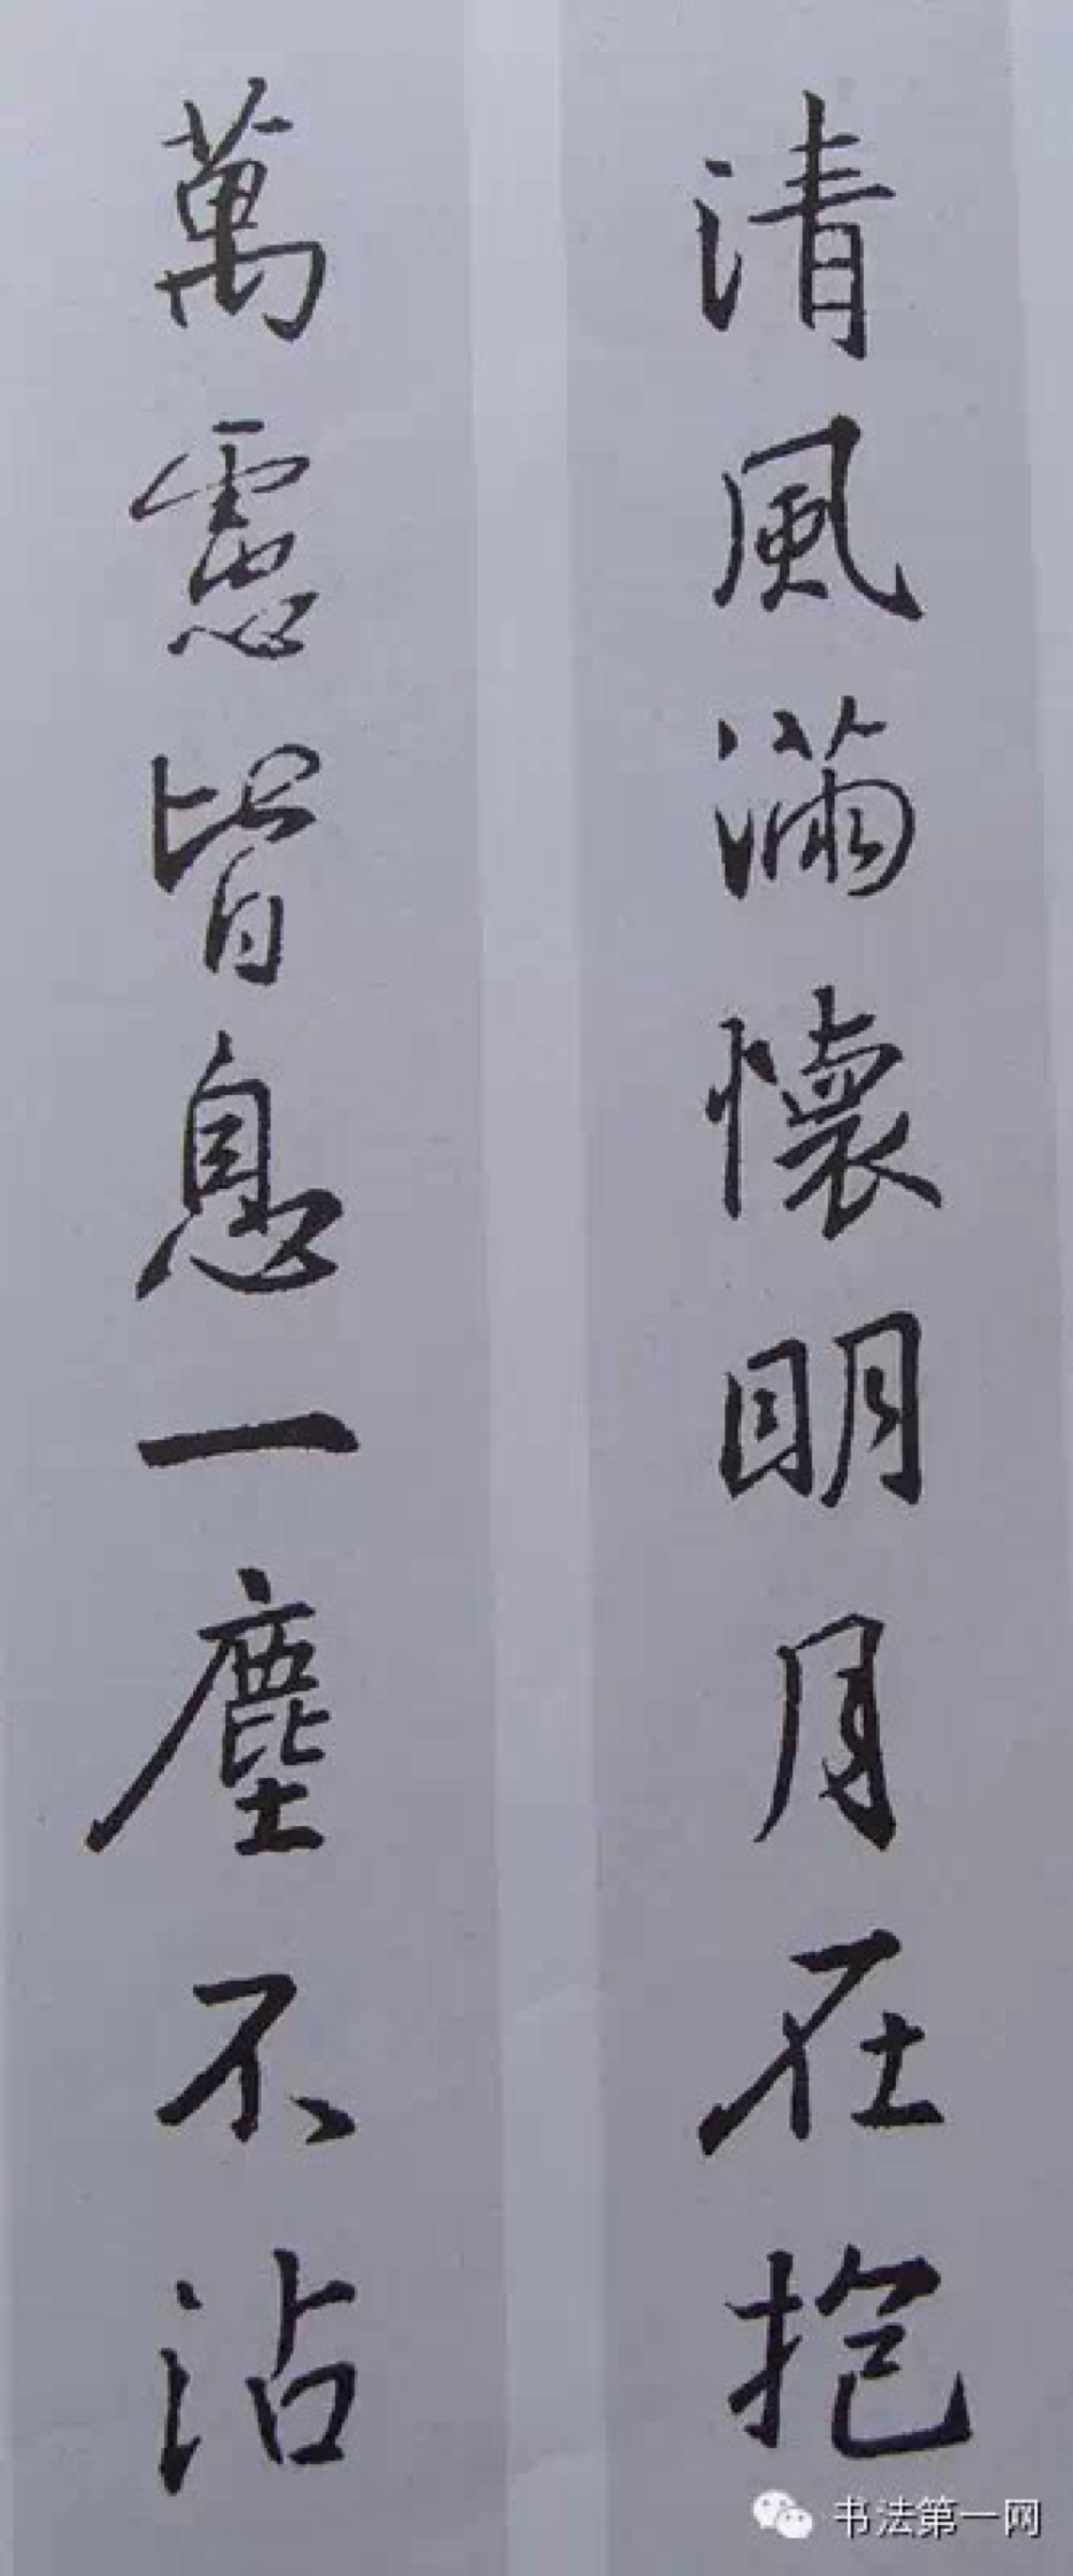 清風滿懷明月在抱
萬慮皆息一塵不沾
书法第一网